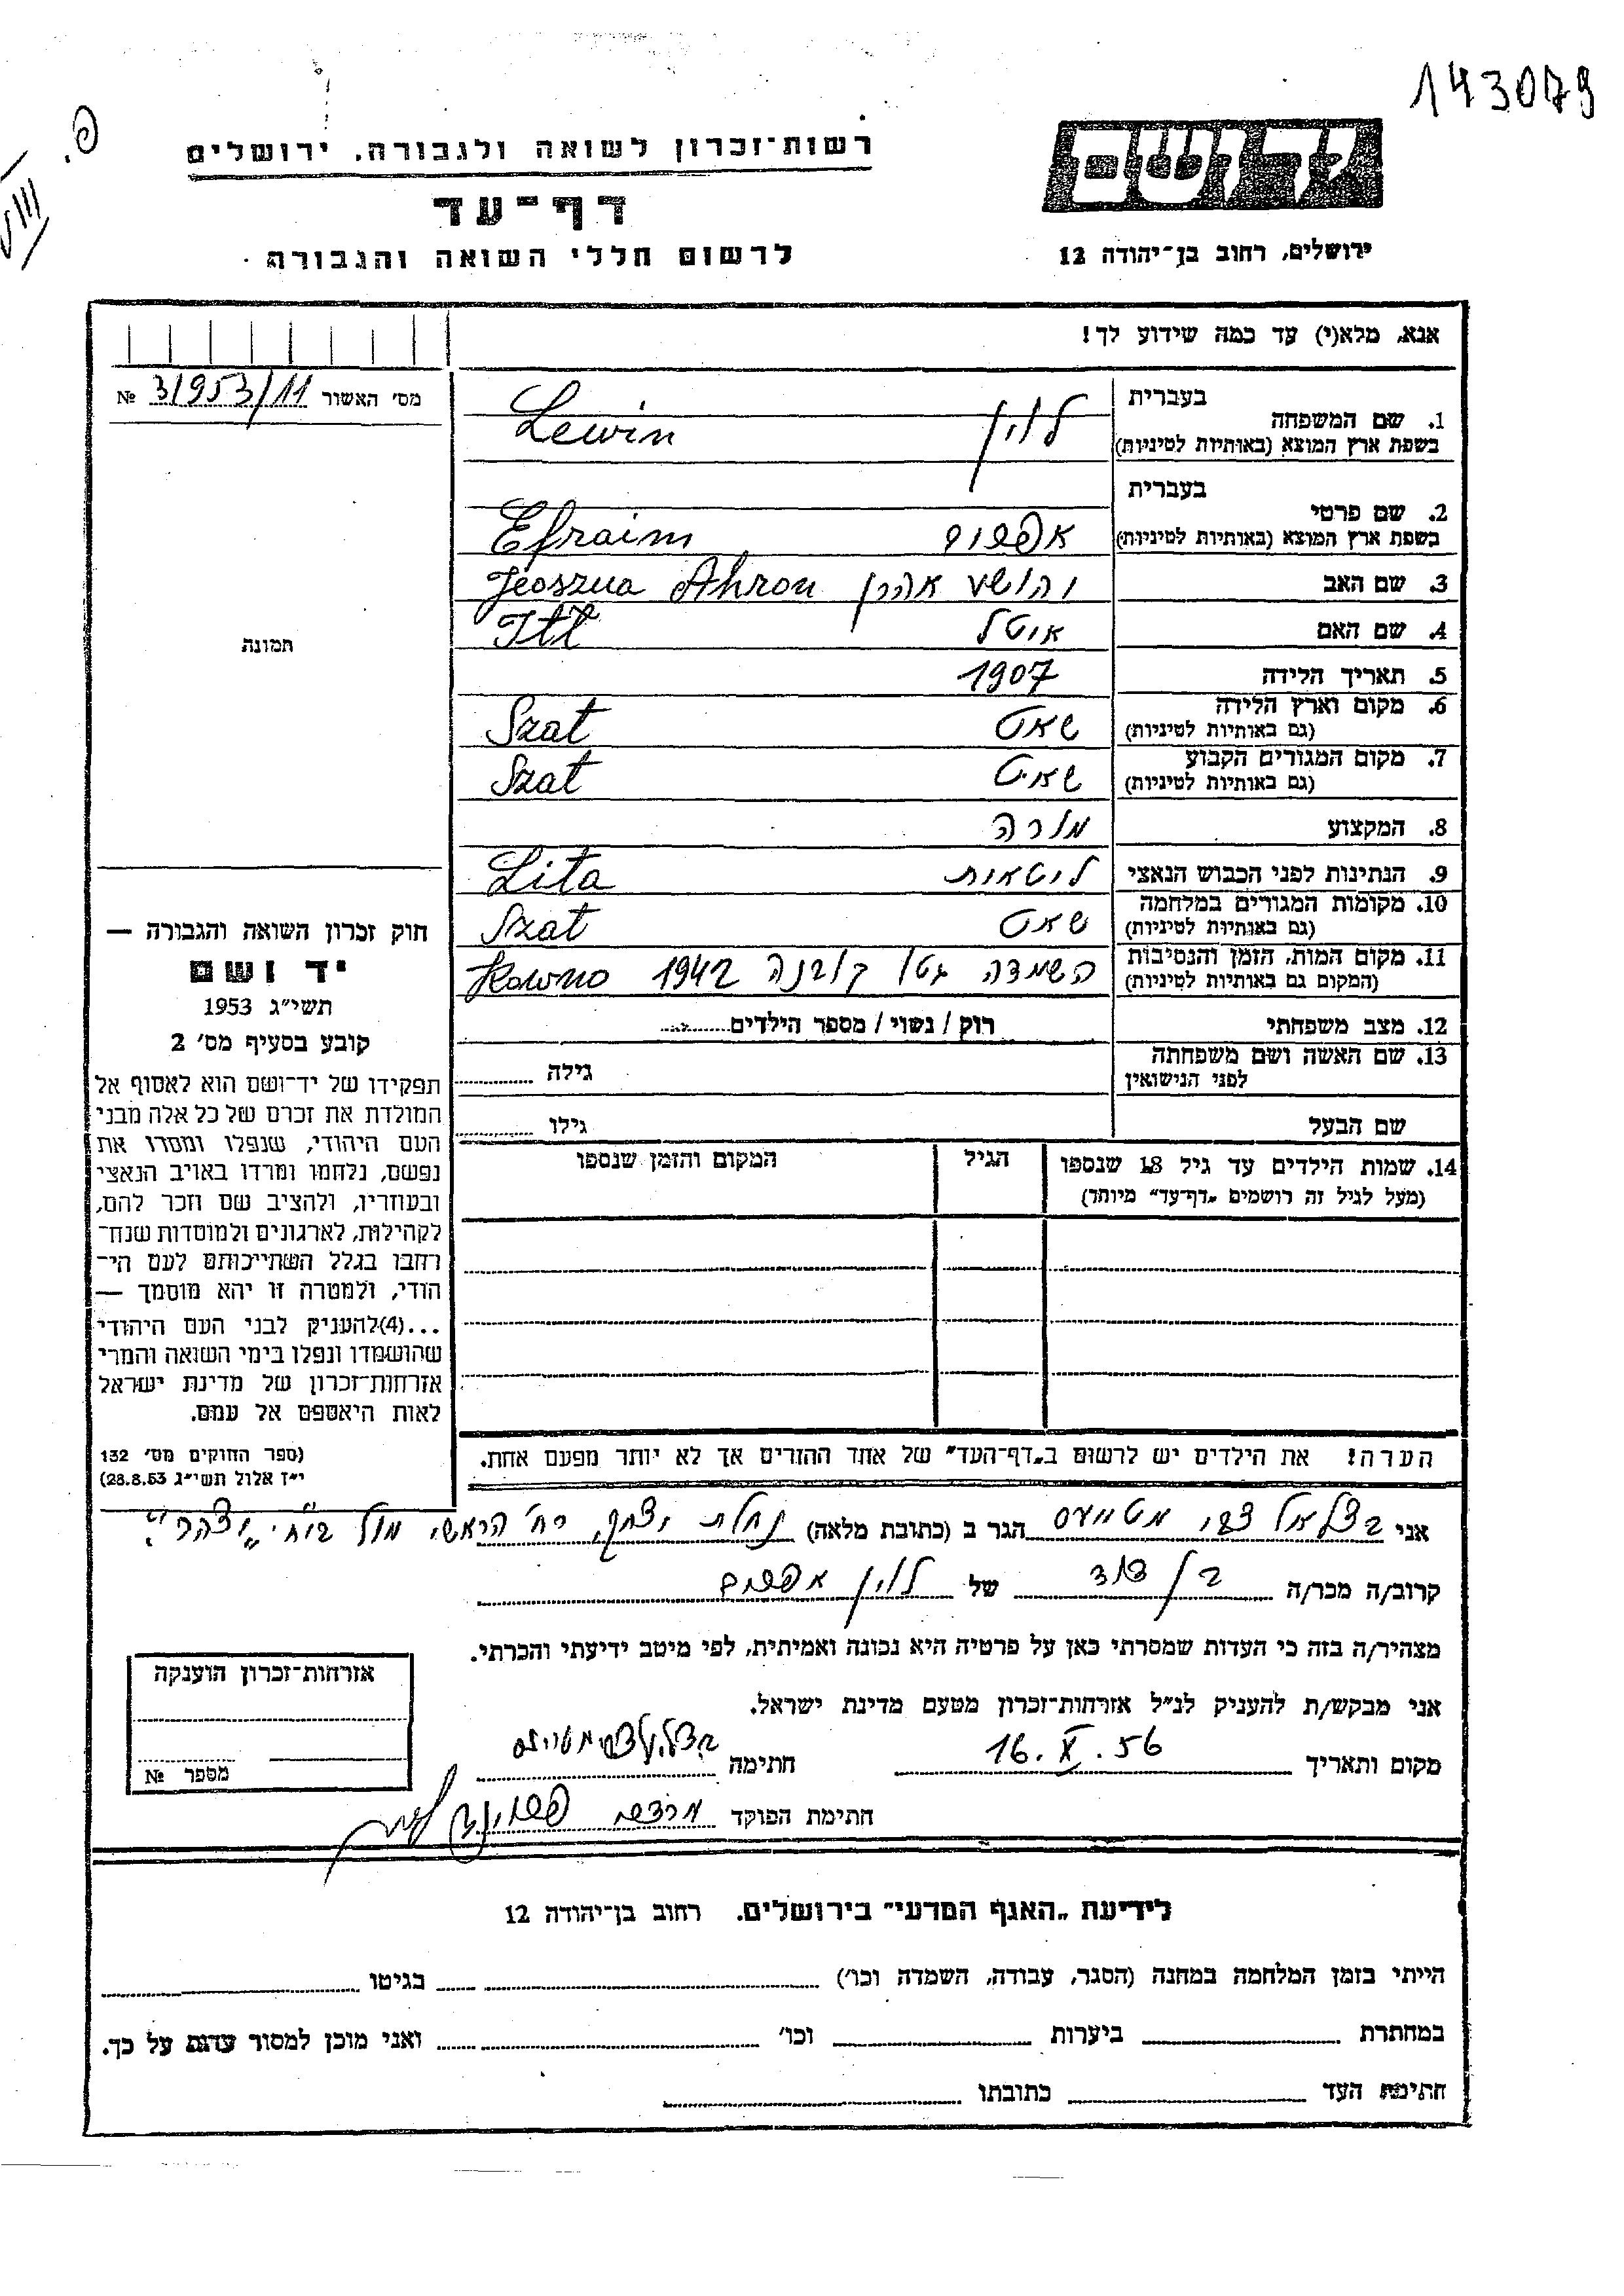 143079
רשות־זכרון לשואה ולגבורה. ירושלים
יד ושם
דף־עד
לרשום חללי השואה והגבורה
ירושלים, רחוב בן־יהודה 12
אנא, מלא(י) עד כמה שידוע לך!
מס׳ האשור 31953/11 №
בעברית
1. שם המשפחה לוין Lewin
בשפת ארץ המוצא (באותיות לטיניות)
בעברית
2. שם פרטי
בשפת ארץ המוצא (באותיות לטיניות) אפרים Efraim
3. שם האב יהושע אהרן Jeoszua Ahron
4. שם האם איטל Itl
5. תאריך הלידה 1907
6. מקום וארץ הלידה שאט Szat
(גם באותיות לטיניות)
7. מקום המגורים הקבוע שאט Szat
(גם באותיות לטיניות)
8. המקצוע מורה
9. הנתינות לפני הכבוש הנאצי ליטאית Lita
10. מקומות המגורים במלחמה שאט Szat
(גם באותיות לטיניות)
11. מקום המות, הזמן והנסיבות השמדה גטו קובנה 1942 Kowno
(המקום גם באותיות לטיניות)
12. מצב משפחתי רוק / נשוי / מספר הילדים
13. שם האשה ושם משפחתה גילה
לפני הנישואין
שם הבעל גילו
14. שמות הילדים עד גיל 18 שנספו הגיל המקום והזמן שנספו
(מעל לגיל זה רושמים „דף־עד״ מיוחד)
תמונה
חוק זכרון השואה והגבורה —
יד ושם
תשי״ג 1953
קובע בסעיף מס׳ 2
תפקידו של יד־ושם הוא לאסוף אל
המולדת את זכרם של כל אלה מבני
העם היהודי, שנפלו ומסרו את
נפשם, נלחמו ומרדו באויב הנאצי
ובעוזריו, ולהציב שם וזכר להם,
לקהילות, לארגונים ולמוסדות שנח־
רחבו בגלל השתייכותם לעם הי־
הודי, ולמטרה זו יהא מוסמך —
...(4)להעניק לבני העם היהודי
שהושמדו ונפלו בימי השואה והמרי
אזרחות־זכרון של מדינת ישראל
לאות היאספם אל עמם.
(ספר החוקים מס׳ 132
י״ז אלול תשי״ג 28.8.53)
הערה! את הילדים יש לרשום ב„דף־העד״ של אחד ההורים אך לא יותר מפעם אחת.
אני בצלאל צבי מטייעס הגר ב (כתובת מלאה) נחלת יצחק, רח׳ הראשי מול ביח׳ „יצהר״
קרוב/ה מכר/ה בן דוד של לוין אפרים
מצהיר/ה בזה כי העדות שמסרתי כאן על פרטיה היא נכונה ואמיתית, לפי מיטב ידיעתי והכרתי.
אני מבקש/ת להעניק לנ״ל אזרחות־זכרון מטעם מדינת ישראל.
מקום ותאריך 16.X.56 חתימה
חתימת הפוקד
אזרחות־זכרון הוענקה
מספר №
לידיעת „האגף המדעי״ בירושלים. רחוב בן־יהודה 12
הייתי בזמן המלחמה במחנה (הסגר, עבודה, השמדה וכו׳) בגיטו
במחתרת ביערות וכו׳ ואני מוכן למסור עדות על כך.
חתימת העד כתובתו